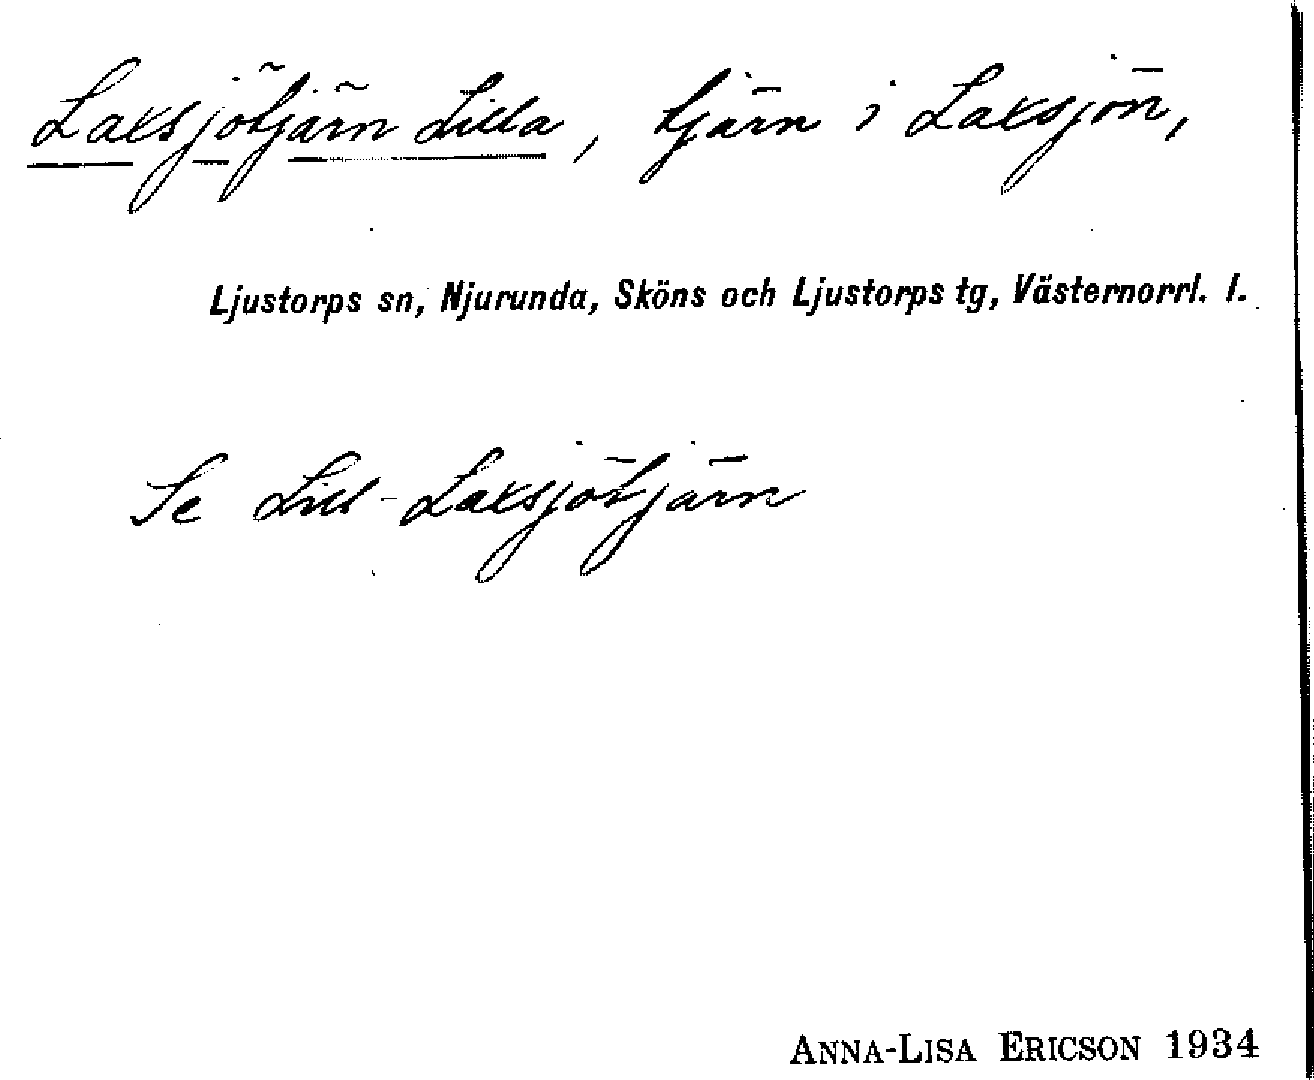 Laksjötjärn Lilla, tjärn i Laksjön,
Ljustorps sn, Njurunda, Sköns och Ljustorps tg, Västernorrl. l.
Se Lill-Laksjötjärn
ANNA-LISA ERICSON 1934